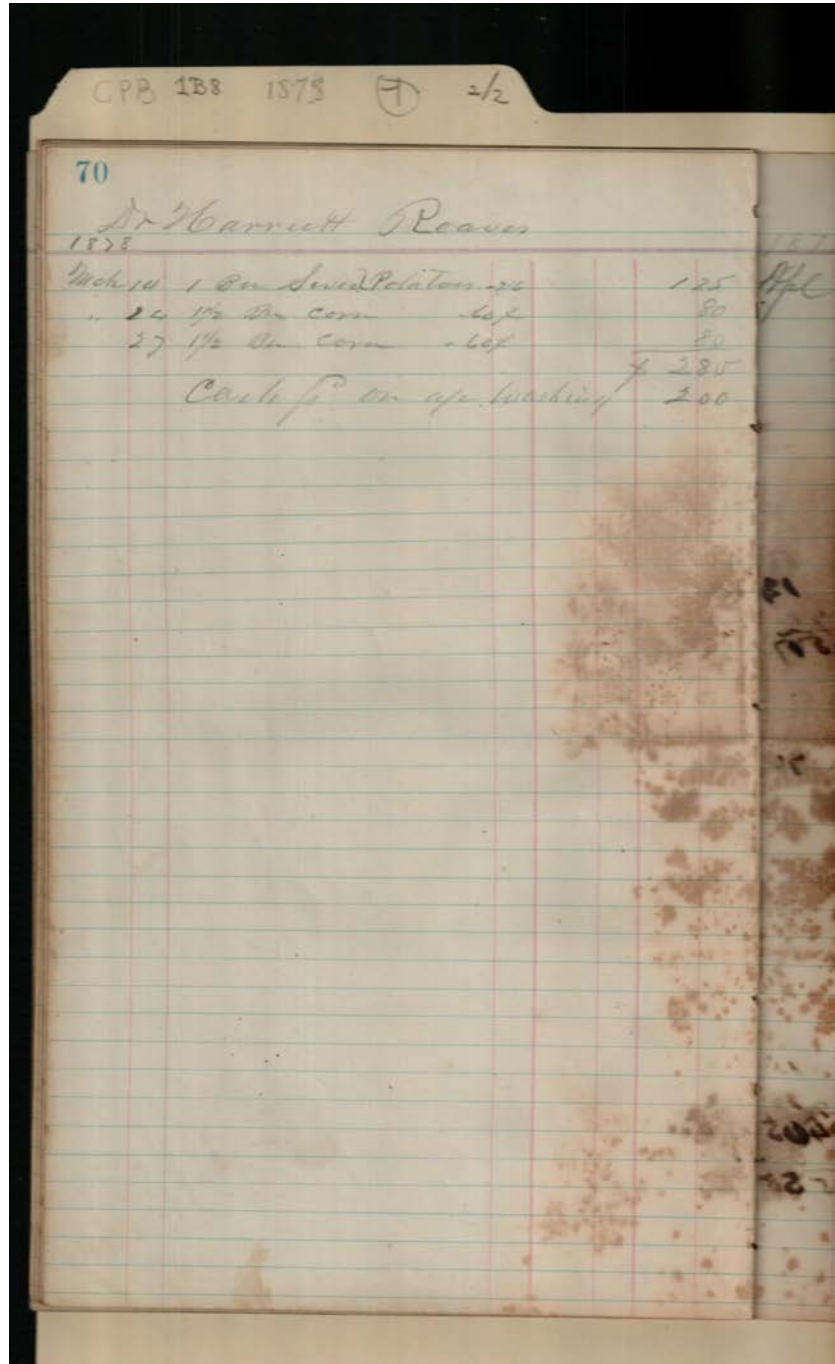 CPB 1B8 1878 1 2/2
70
Dr Harriett Reaves
1878
Mch 14 1 Bu Potatoes 125
" 24 1½ Bu Corn 60¢ 80
27 1½ Bu Corn 60¢ 80
285
Cash on a/c Washing 200
Apl